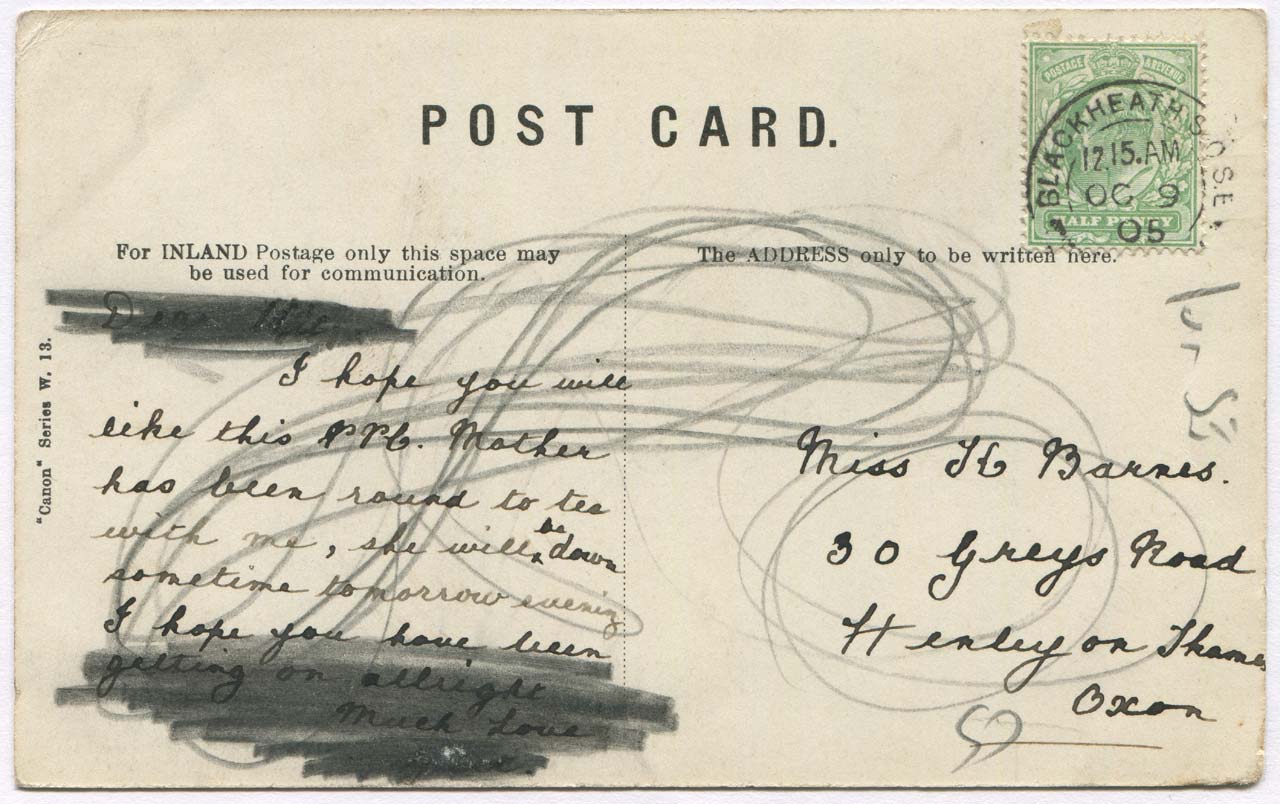 POST CARD.
POSTAGE & REVENUE
HALF PENNY
BLACKHEATH S.O. S.E.
12.15.AM
OC 9
05
For INLAND Postage only this space may
be used for communication.
The ADDRESS only to be written here.
"Canon" Series W. 13.
Dear
I hope you will
like this PPC. Mother
has been round to tea
with me, she will be down
sometime tomorrow evening
I hope you have been
getting on allright
Much Love
Miss K Barnes.
30 Greys Road
Henley on Thames
Oxon